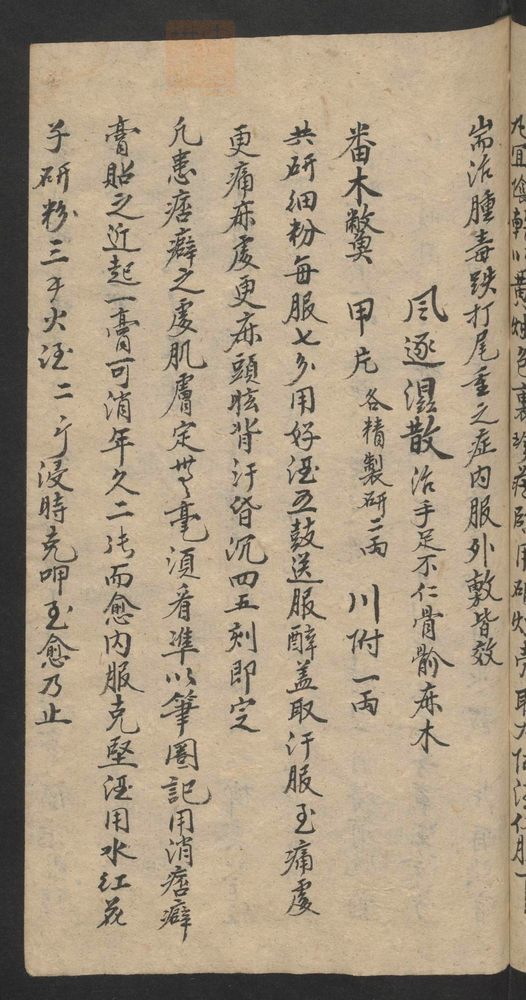 耑治腫毒跌打尾重之症內服外敷皆效
風逐濕散 治手足不仁骨骱麻木
番木鱉 甲片 各精製研二兩 川附一兩
共研細粉每服七分用好酒五鼓送服醉蓋取汗服至痛處
更痛麻處更麻頭眩背汗昏沉四五刻即定
凡患痞癖之處肌膚定無毫須看準以筆圈記用消痞癖
膏貼之近起一膏可消年久二張而愈內服克堅酒用水紅花
子研粉三子火酒二斤浸時克呷至愈乃止